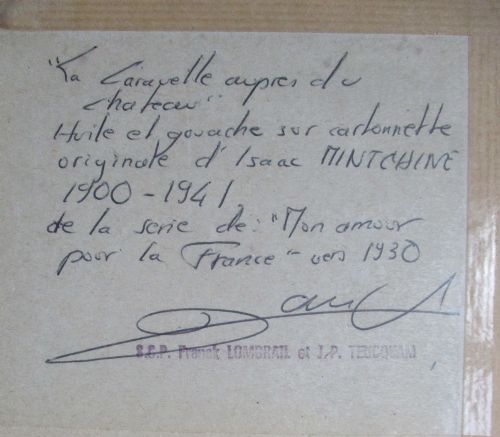 "La Caravelle aupres du
chateau"
Huile et gouache sur cartonnette
originale d'Isaac MINTCHINE
1900-1941,
de la serie de: "Mon amour
pour la France" - vers 1930
S.C.P. Franck LOMBRAIL et J.P. TEUCQUAM